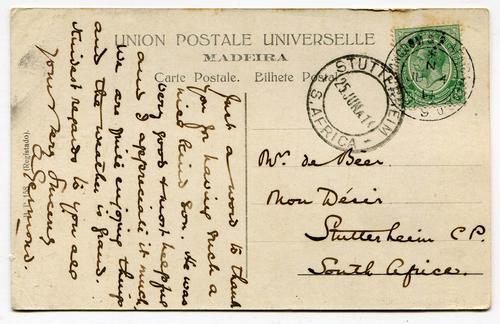 UNION POSTALE UNIVERSELLE
MADEIRA
Carte Postale. Bilhete Postal
STUTTERHEIM
25 JUN 14
S. AFRICA
Just a word to thank
you for having such a
nice kind son. He was
very good & most helpful
and I appreciate it much,
we are quite enjoying things
and the weather is grand.
Kindest regards to you all
Yours very sincerely
Mr. de Beer
Mon Désir
Stutterheim C.P.
South Africa.
(Registado).